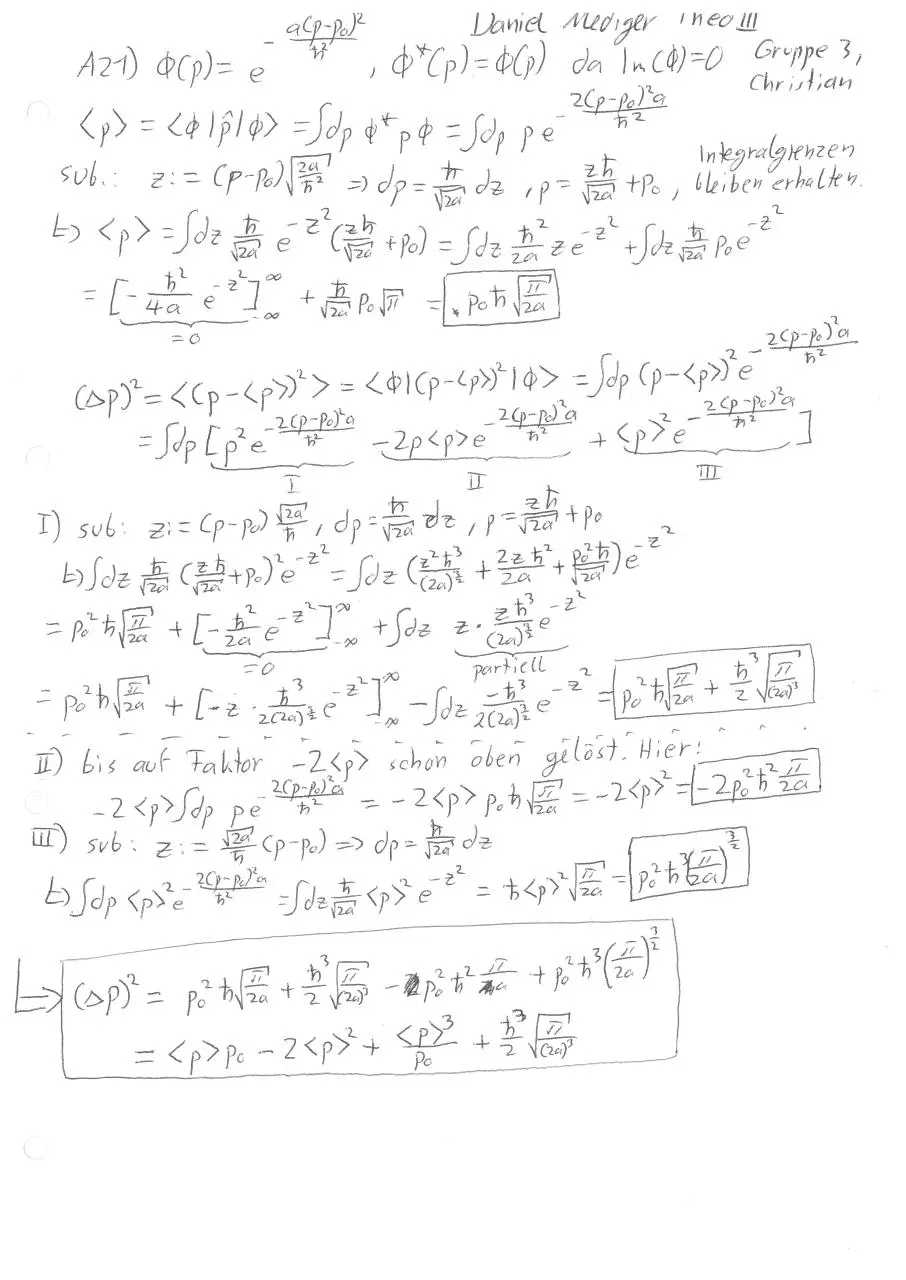 Daniel Mediger Theo III
A21) Φ(p) = e^{-a(p-p₀)²/ħ²}, Φ*(p) = Φ(p) da Im(Φ)=0 Gruppe 3, Christian
<p> = <Φ|p̂|Φ> = ∫dp Φ* p Φ = ∫dp p e^{-2(p-p₀)²a/ħ²}
sub.: z := (p-p₀)√(2a/ħ²) => dp = ħ/√(2a) dz, p = zħ/√(2a) + p₀, Integralgrenzen bleiben erhalten.
↳ <p> = ∫dz ħ/√(2a) e^{-z²} (zħ/√(2a) + p₀) = ∫dz ħ²/2a z e^{-z²} + ∫dz ħ/√(2a) p₀ e^{-z²}
= [-ħ²/4a e^{-z²}]_{-∞}^{∞} + ħ/√(2a) p₀ √π = p₀ħ√(π/2a)
=0
(Δp)² = <(p-<p>)²> = <Φ|(p-<p>)²|Φ> = ∫dp (p-<p>)² e^{-2(p-p₀)²a/ħ²}
= ∫dp [p² e^{-2(p-p₀)²a/ħ²} - 2p<p> e^{-2(p-p₀)²a/ħ²} + <p>² e^{-2(p-p₀)²a/ħ²}]
I II III
I) sub: z := (p-p₀) √(2a)/ħ, dp = ħ/√(2a) dz, p = zħ/√(2a) + p₀
↳ ∫dz ħ/√(2a) (zħ/√(2a) + p₀)² e^{-z²} = ∫dz (z²ħ³/(2a)^{3/2} + 2zħ²/2a + p₀²ħ/√(2a)) e^{-z²}
= p₀²ħ√(π/2a) + [-ħ²/2a e^{-z²}]_{-∞}^{∞} + ∫dz z · zħ³/(2a)^{3/2} e^{-z²}
=0 partiell
= p₀²ħ√(π/2a) + [-z · ħ³/2(2a)^{3/2} e^{-z²}]_{-∞}^{∞} - ∫dz -ħ³/2(2a)^{3/2} e^{-z²} = p₀²ħ√(π/2a) + ħ³/2 √(π/(2a)³)
II) bis auf Faktor -2<p> schon oben gelöst. Hier:
-2<p>∫dp p e^{-2(p-p₀)²a/ħ²} = -2<p> p₀ħ√(π/2a) = -2<p>² = -2p₀²ħ² π/2a
III) sub: z := √(2a)/ħ (p-p₀) => dp = ħ/√(2a) dz
↳ ∫dp <p>² e^{-2(p-p₀)²a/ħ²} = ∫dz ħ/√(2a) <p>² e^{-z²} = ħ<p>²√(π/2a) = p₀²ħ³(π/2a)^{3/2}
↳ (Δp)² = p₀²ħ√(π/2a) + ħ³/2 √(π/(2a)³) - p₀²ħ² π/a + p₀²ħ³(π/2a)^{3/2}
= <p>p₀ - 2<p>² + <p>³/p₀ + ħ³/2 √(π/(2a)³)